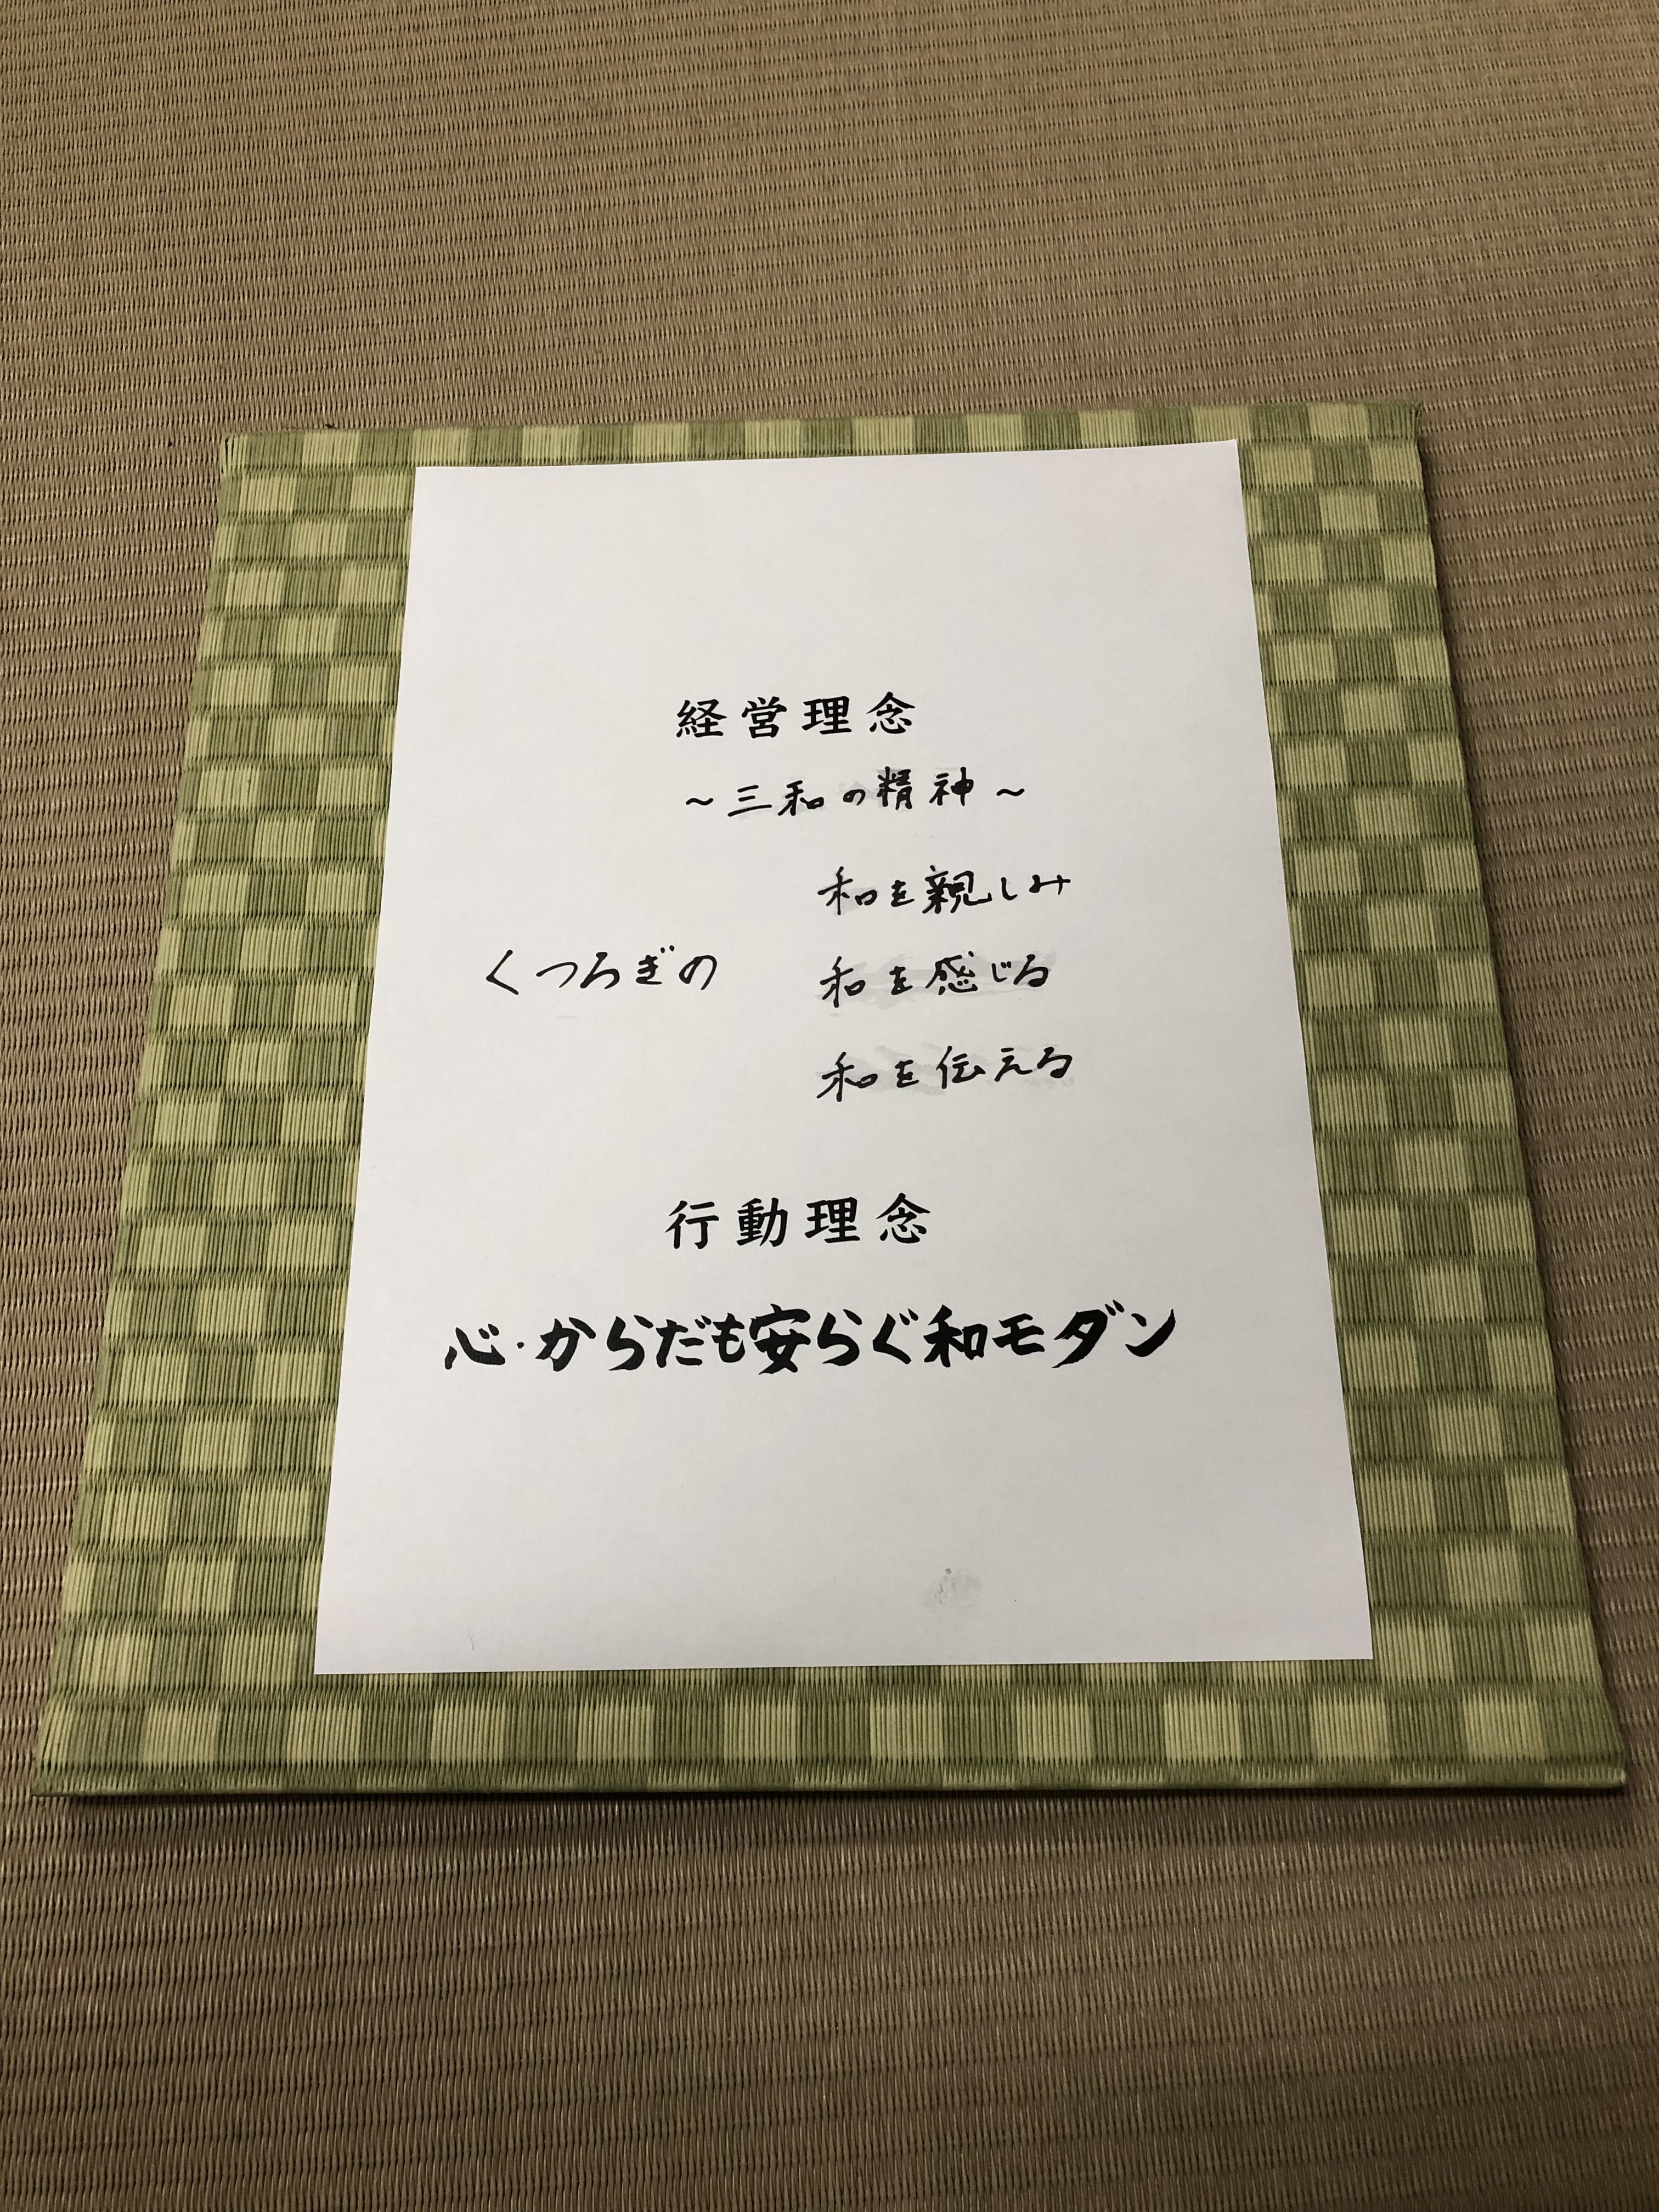 経営理念
~三和の精神~
和を親しみ
くつろぎの 和を感じる
和を伝える
行動理念
心・からだも安らぐ和モダン